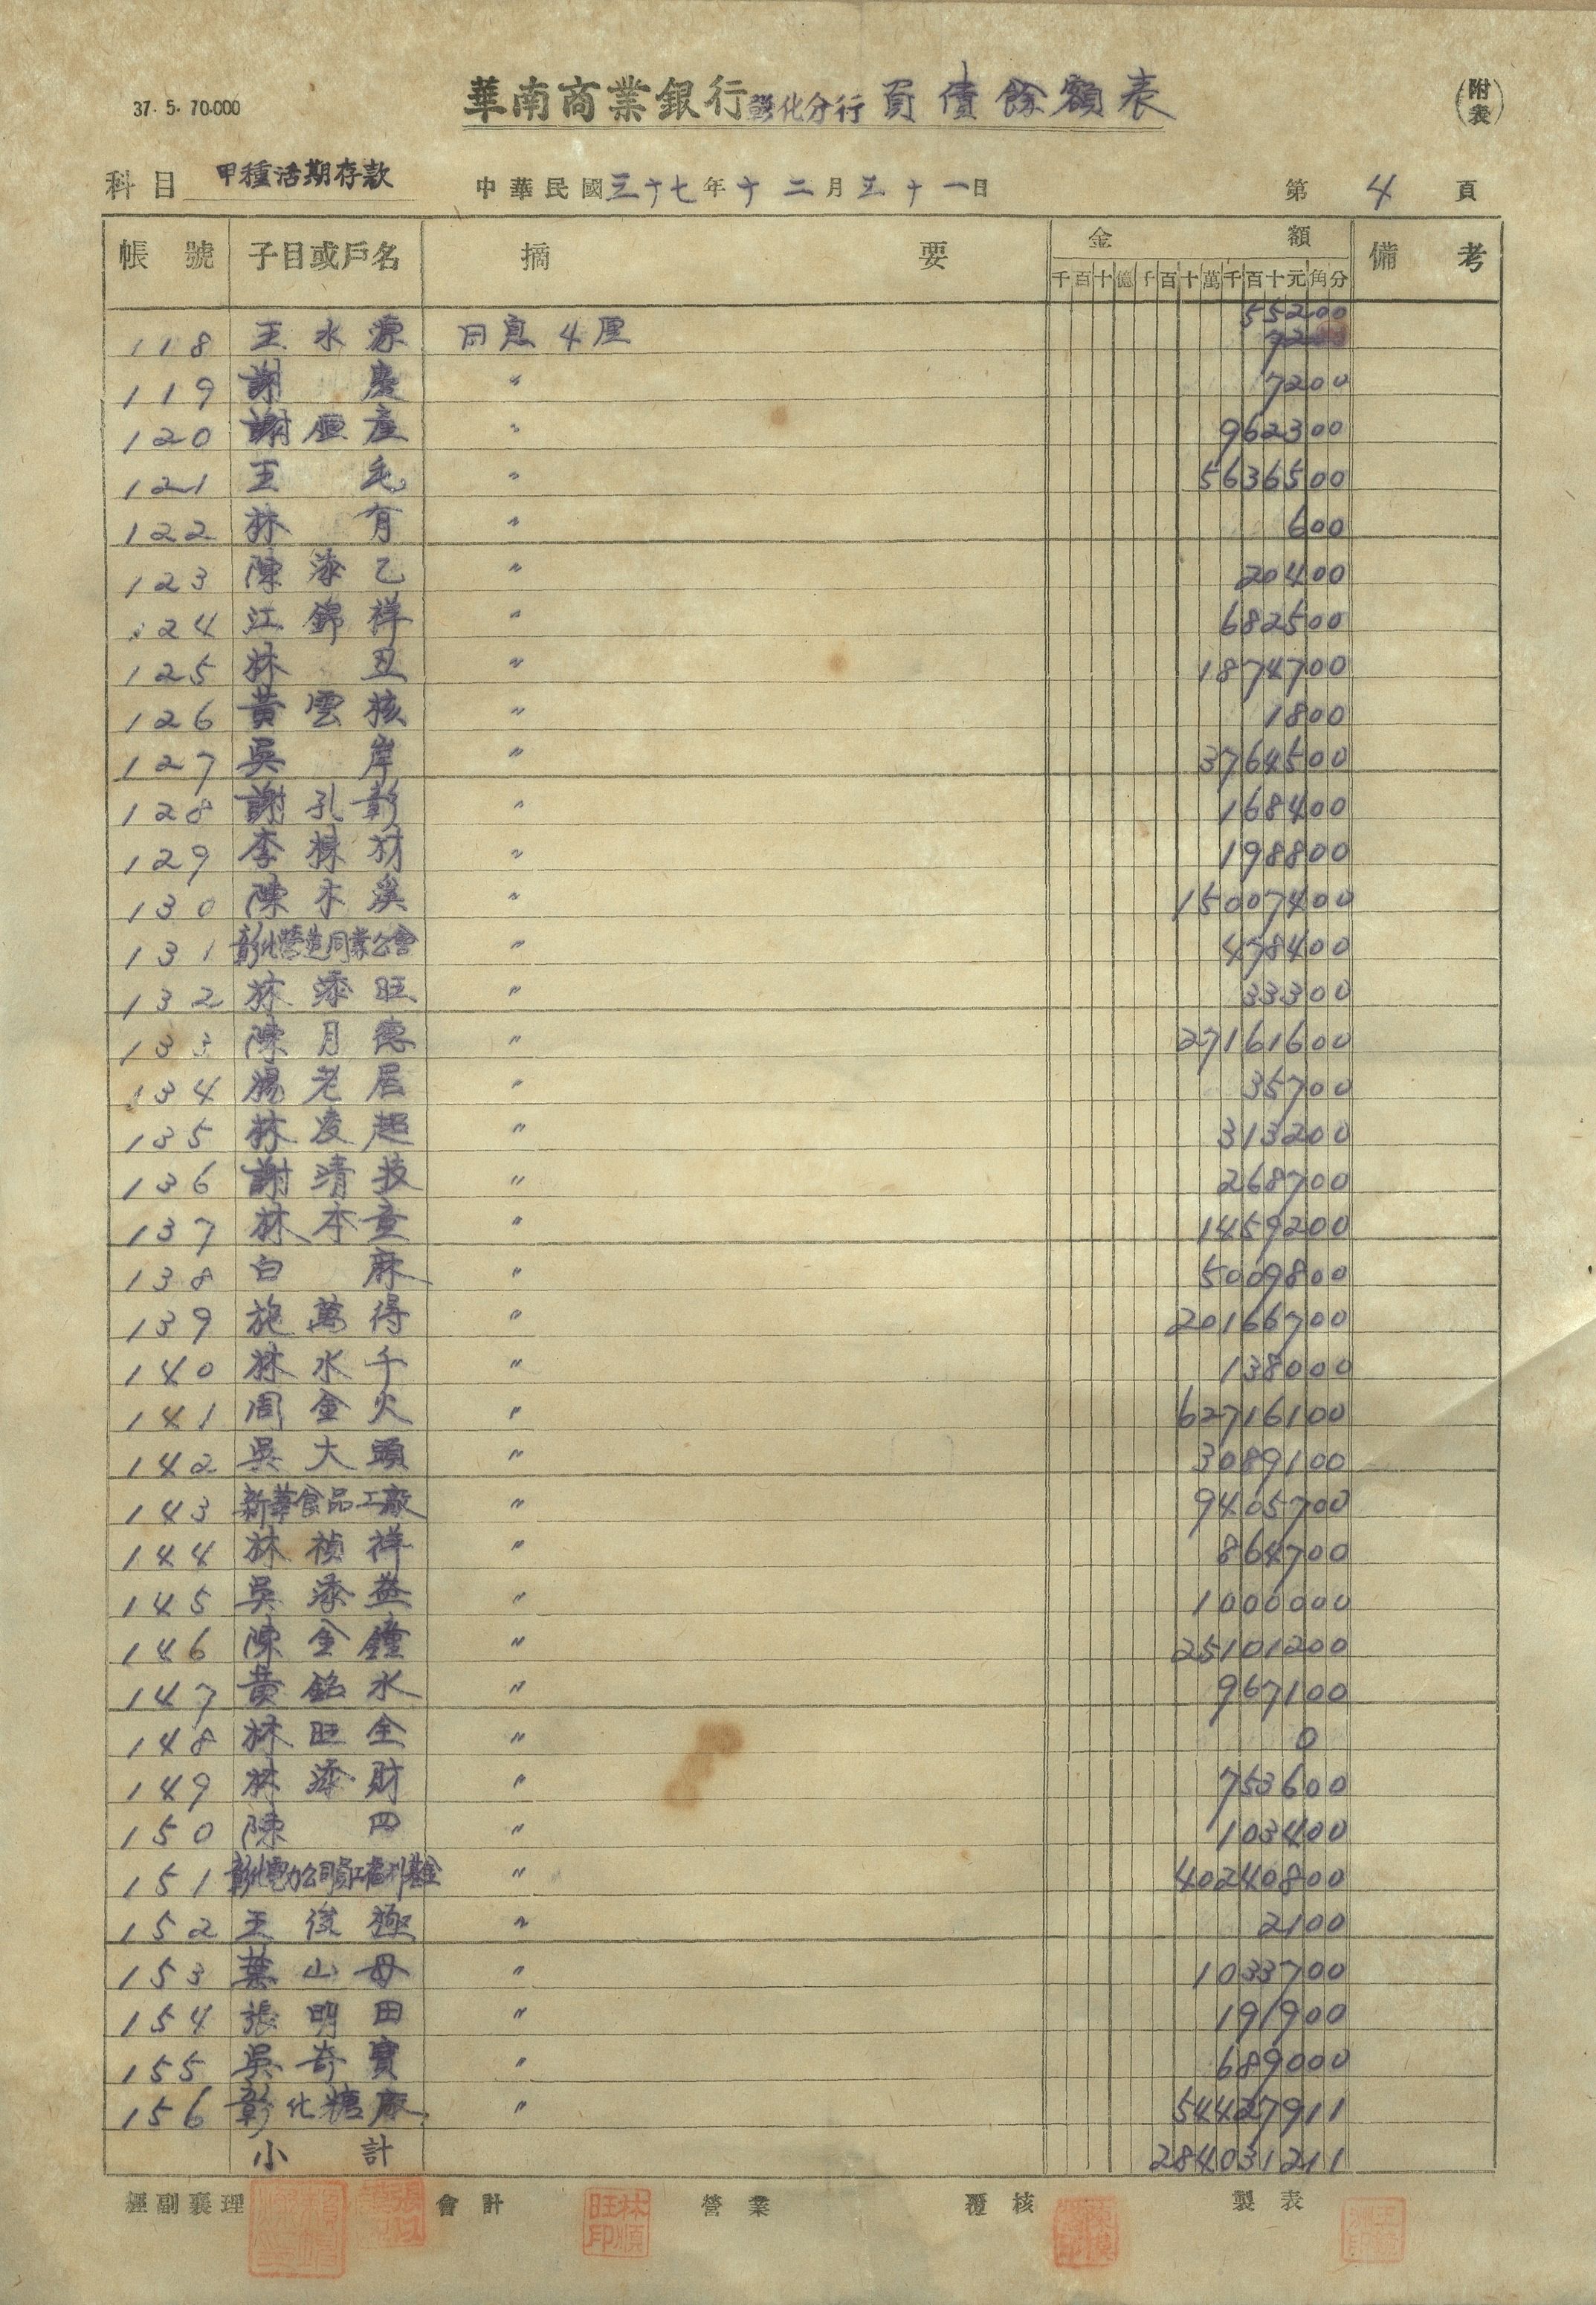 37. 5. 70.000
華南商業銀行彰化分行負債餘額表
(附表)
科目 甲種活期存款 中華民國三十七年十二月三十一日 第 4 頁
帳號 子目或戶名 摘要 金額 備考
千百十億千百十萬千百十元角分
55200
118 王水源 日息4厘 72
119 謝慶 〃 7200
120 謝 產 〃 962300
121 王毛 〃 5636500
122 林有 〃 600
123 陳添乙 〃 20400
124 江錦祥 〃 682500
125 林丑 〃 1874700
126 黃雲核 〃 1800
127 吳岸 〃 3764500
128 謝孔彰 〃 168400
129 李棟材 〃 198800
130 陳木溪 〃 15007400
131 彰化營造同業公會 〃 478400
132 林添旺 〃 33300
133 陳月德 〃 27161600
134 楊老居 〃 35700
135 林凌超 〃 313200
136 謝清技 〃 268700
137 林本童 〃 1459200
138 白麻 〃 5009800
139 施萬得 〃 20166700
140 林水千 〃 138000
141 周金火 〃 62716100
142 吳大頭 〃 3089100
143 新華食品工廠 〃 9405700
144 林禎祥 〃 864700
145 吳添益 〃 1000000
146 陳金鐘 〃 25101200
147 黃銘水 〃 967100
148 林旺全 〃 0
149 林添財 〃 753600
150 陳四 〃 103400
151 彰化電力公司員工福利基金 〃 40240800
152 王俊極 〃 2100
153 葉山母 〃 1033700
154 張明田 〃 191900
155 吳奇寶 〃 689000
156 彰化糖廠 〃 54427911
小計 284031211
經副襄理 會計 林順旺印 營業 覆核 製表